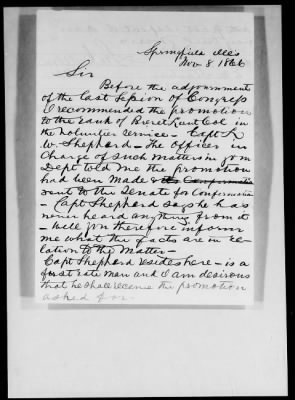 Springfield Ills
Nov 8 1866
Sir
Before the adjournment
of the last Session of Congress
I recommended the promotion
to the rank of Brevet Lieut Col in
the Volunteer service - Capt L
W. Shepherd - The officer in
Charge of such matters in your
Dept told me the promotion
had been made &
sent to the Senate for Confirmation
- Capt Shepherd says he has
never heard anything from it
- Will you therefore inform
me what the facts are in re-
lation to the Matter -
Capt Shepherd resides here - is a
first rate man and I am desirous
that he shall receive the promotion
asked for -